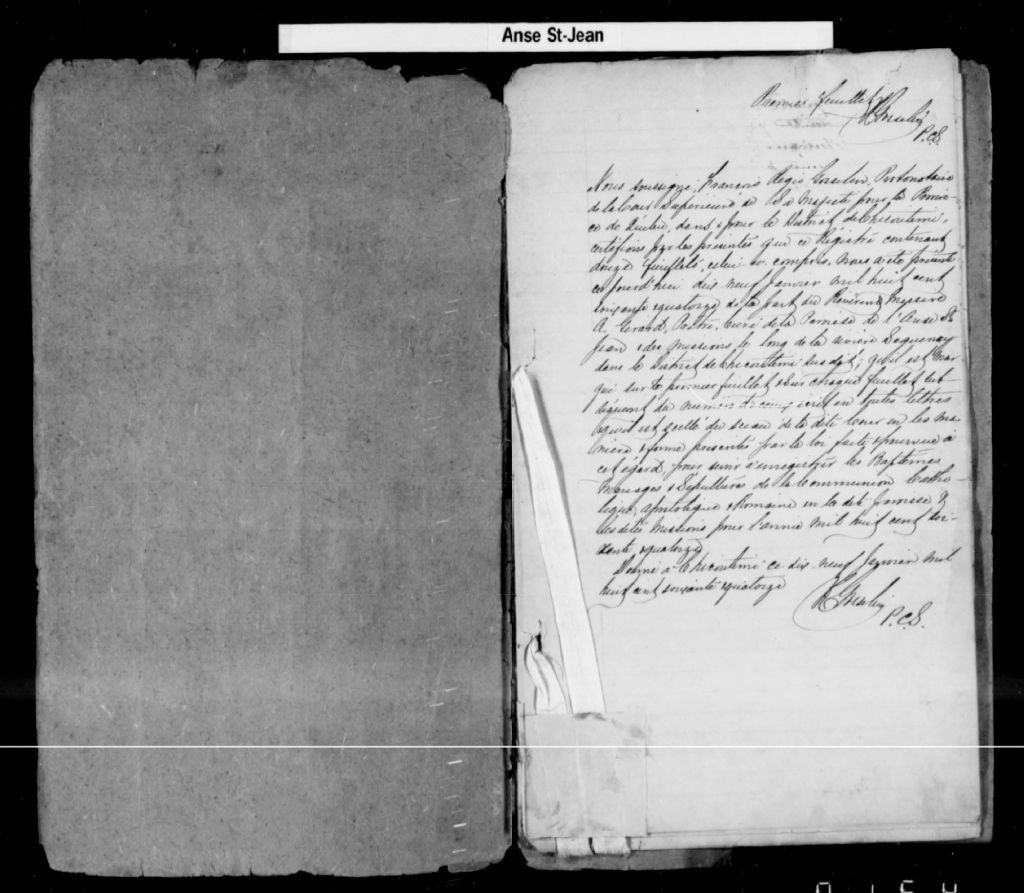 Anse St-Jean
Premier feuillet
P.C.S.
Nous soussigné, François Régis Gosselin, Protonotaire
de la Cour Supérieure de Sa Majesté pour la Provin-
ce de Québec, dans & pour le District de Chicoutimi,
certifions par les présentes que ce Régistre contenant
douze feuillets, celui-ci compris, nous a été présenté
ce jourd'hui dix neuf Janvier mil huit cent
soixante & quatorze de la part du Révérend Messire
A. Girard, Prêtre, Curé de la Paroisse de l'Anse St
Jean & des missions le long de la rivière Saguenay
dans le District de Chicoutimi susdit; qu'il est mar-
qué sur le premier feuillet & sur chaque feuillet sub-
séquent du numéro écrit en toutes lettres
& qu'il est scellé du sceau de la dite Cour en la ma-
nière & forme prescrites par la loi faite & pourvue à
cet égard, pour servir à enregistrer les Baptêmes
Mariages & Sépultures de la Communion Catho-
lique, apostolique & Romaine en la dite paroisse &
les dites missions pour l'année mil huit cent soi-
xante & quatorze
Donné à Chicoutimi ce dix neuf Janvier mil
huit cent soixante & quatorze
P.C.S.